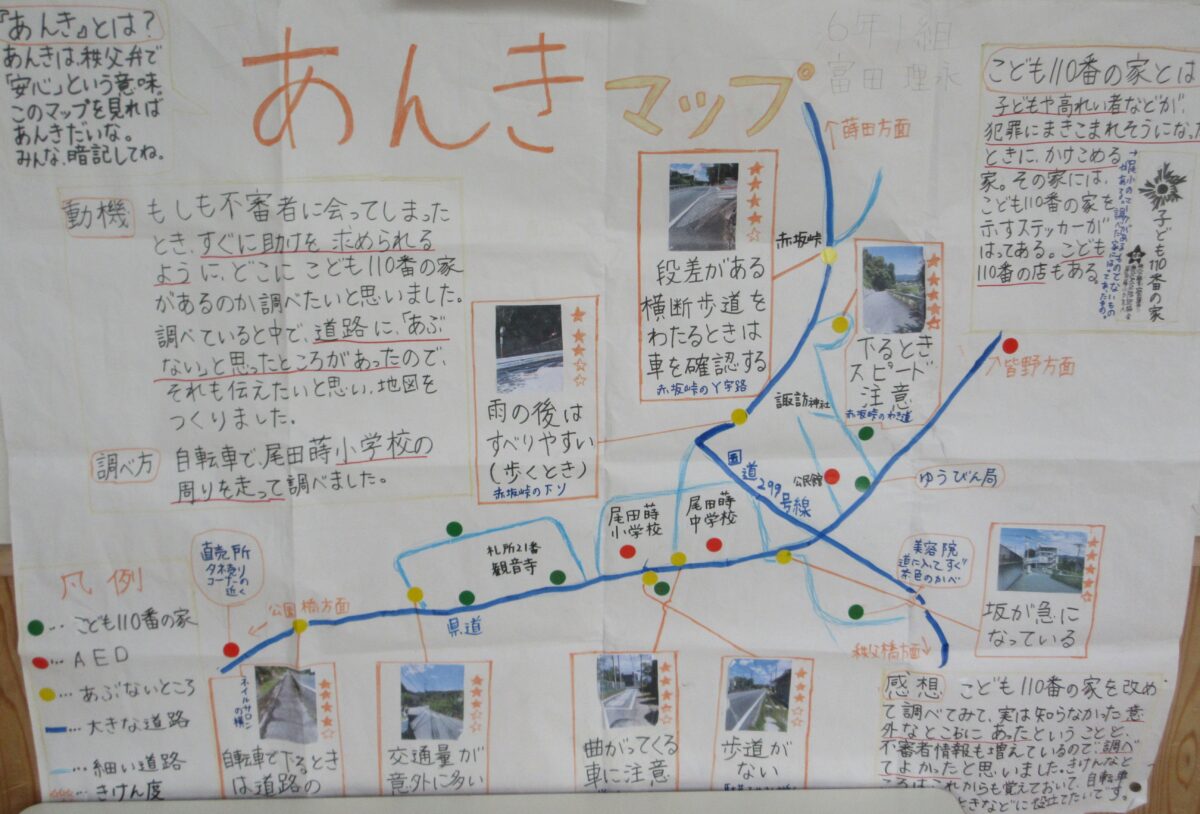 『あんき』とは?
あんきは、秩父弁で
「安心」という意味。
このマップを見れば
あんきだいな。
みんな、暗記してね。
あんきマップ
6年1組
富田 理永
こども110番の家とは
子どもや高れい者などが、
犯罪にまきこまれそうになった
ときに、かけこめる
家。その家には、
こども110番の家を
示すステッカーが
はってある。こども
110番の店もある。
子ども110番の家
動機
もしも不審者に会ってしまった
とき、すぐに助けを求められる
ように、どこにこども110番の家
があるのか調べたいと思いました。
調べていると中で、道路に、「あぶ
ない」と思ったところがあったので、
それも伝えたいと思い、地図を
つくりました。
調べ方
自転車で、尾田蒔小学校の
周りを走って調べました。
↑蒔田方面
赤坂峠
★★★★☆
段差がある
横断歩道を
わたるときは
車を確認する
赤坂峠のY字路
下るとき、
スピード
注意
赤坂峠のわき道
★★★☆☆
雨の後は
すべりやすい
(歩くとき)
赤坂峠の下り
↑皆野方面
諏訪神社
公民館
ゆうびん局
国道299号線
尾田蒔
小学校
尾田蒔
中学校
札所21番
観音寺
県道
美容院
道に入ってすぐ
茶色のかべ
坂が急に
なっている
秩父橋方面↓
直売所
タネ売り
コーナーの
近く
←公園橋方面
凡例
…こども110番の家
…AED
…あぶないところ
…大きな道路
…細い道路
…きけん度
ネイルサロン
の横
自転車で下るとき
は道路の
交通量が
意外に多い
曲がってくる
車に注意
歩道が
ない
感想
こども110番の家を改め
て調べてみて、実は知らなかった意
外なところにあったということと、
不審者情報も増えているので、調べ
てよかったと思いました。きけんなと
ころはこれからも覚えておいて、自転車
ときなどに役立てたいです。